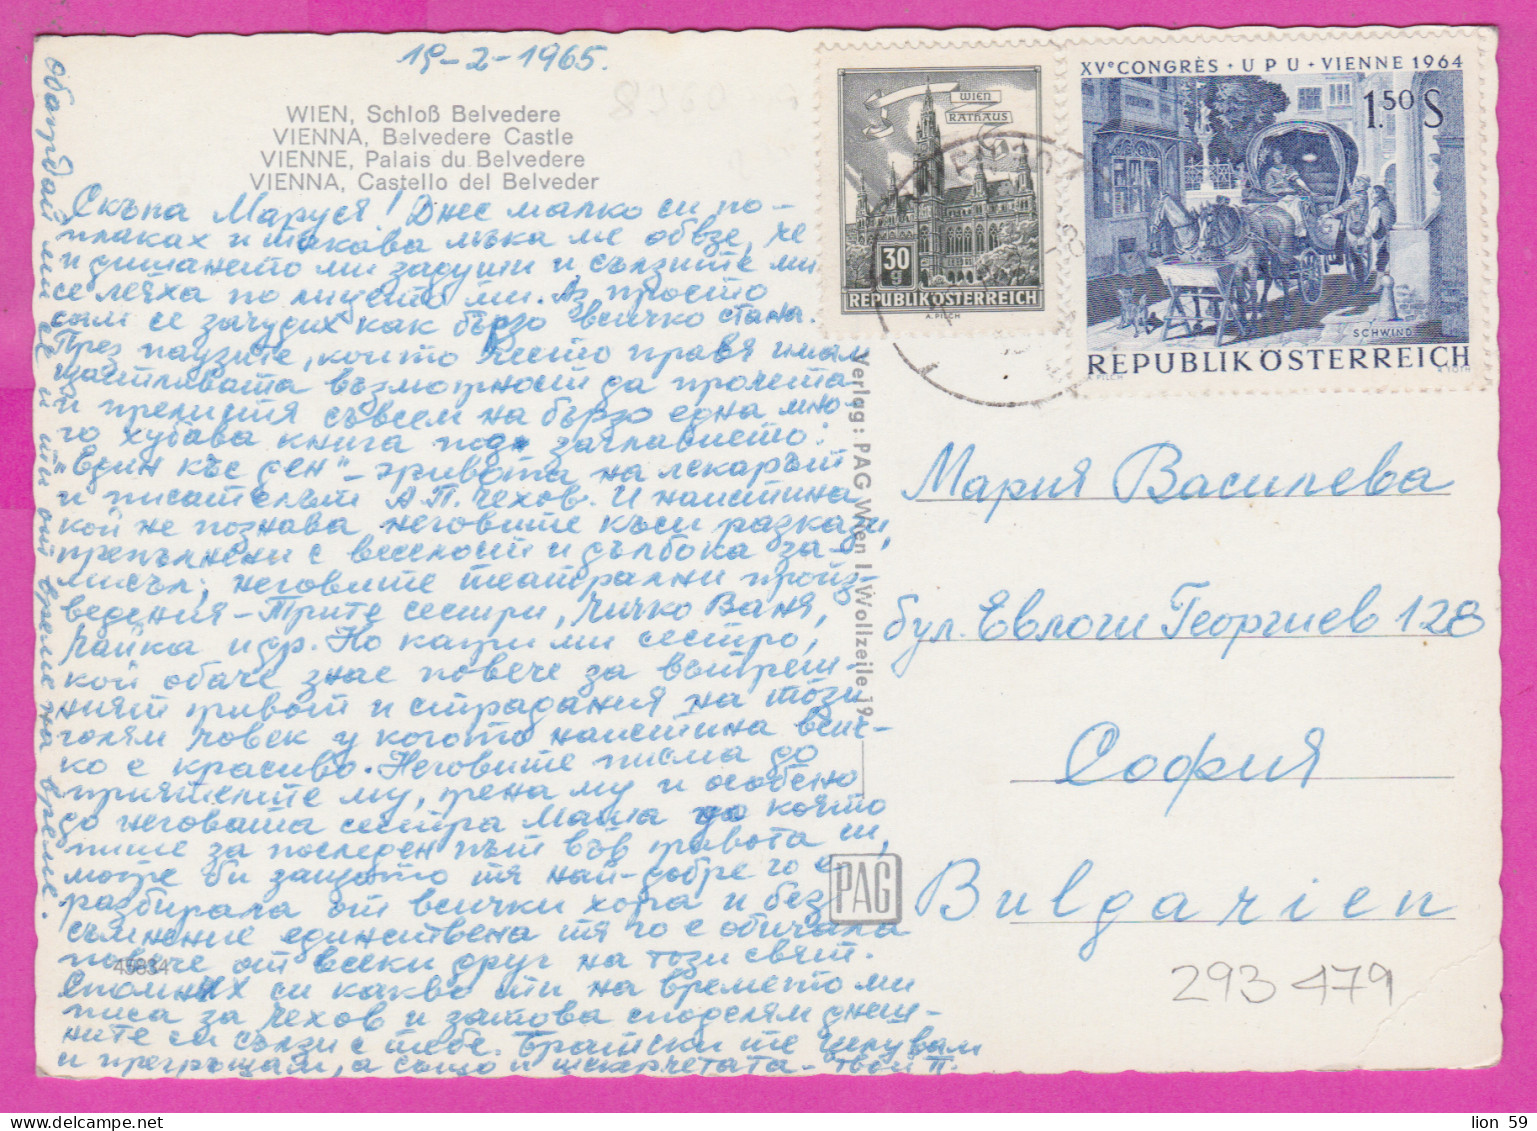 19-2-1965.
WIEN, Schloß Belvedere
VIENNA, Belvedere Castle
VIENNE, Palais du Belvedere
VIENNA, Castello del Belveder
Скъпа Маруся! Днес малко си по-
плаках и такава мъка ме обзе, че
и дишането ми задуши и сълзите ми
се леяха по лицето ми. Аз просто
сам се зачудих как бързо всичко стана.
През паузите, които често правя имам
щастливата възможност да прочета
и преживея съвсем на бързо една мно-
го хубава книга под заглавието:
"Един къс ден" - живота на лекарът
и писателът А.П. Чехов. И наистина
кой не познава неговите къси разкази,
препълнени с веселост и дълбока за-
мисъл, неговите театрални произ-
ведения - Трите сестри, Чичко Ваня,
Чайка и др. Но кажи ми сестро,
кой обаче знае повече за вътреш-
ният живот и страдания на този
голям човек у когото наистина всич-
ко е красиво. Неговите писма до
приятелите му, жена му и особено
до неговата сестра Маша до която
пише за последен път във живота си,
може би защото тя най-добре го е
разбирала от всички хора и без
съмнение единствена тя го е обичала
повече от всеки друг на този свят.
Спомних си какво ти на времето ми
писа за Чехов и затова споделям днеш-
ните си сълзи с тебе. Братски те целувам
и прегръщам, а също и шкарчетата - твой П.
обаждай ми се и ти от време на време.
45834
Verlag: PAG Wien I Wollzeile 19
PAG
WIEN
RATHAUS
30 g
REPUBLIK ÖSTERREICH
A. PILCH
XVe CONGRÈS · UPU · VIENNE 1964
1.50 S
SCHWIND
REPUBLIK ÖSTERREICH
A. PILCH
Мария Василева
бул. Евлоги Георгиев 128
София
Bulgarien
293479
lion 59